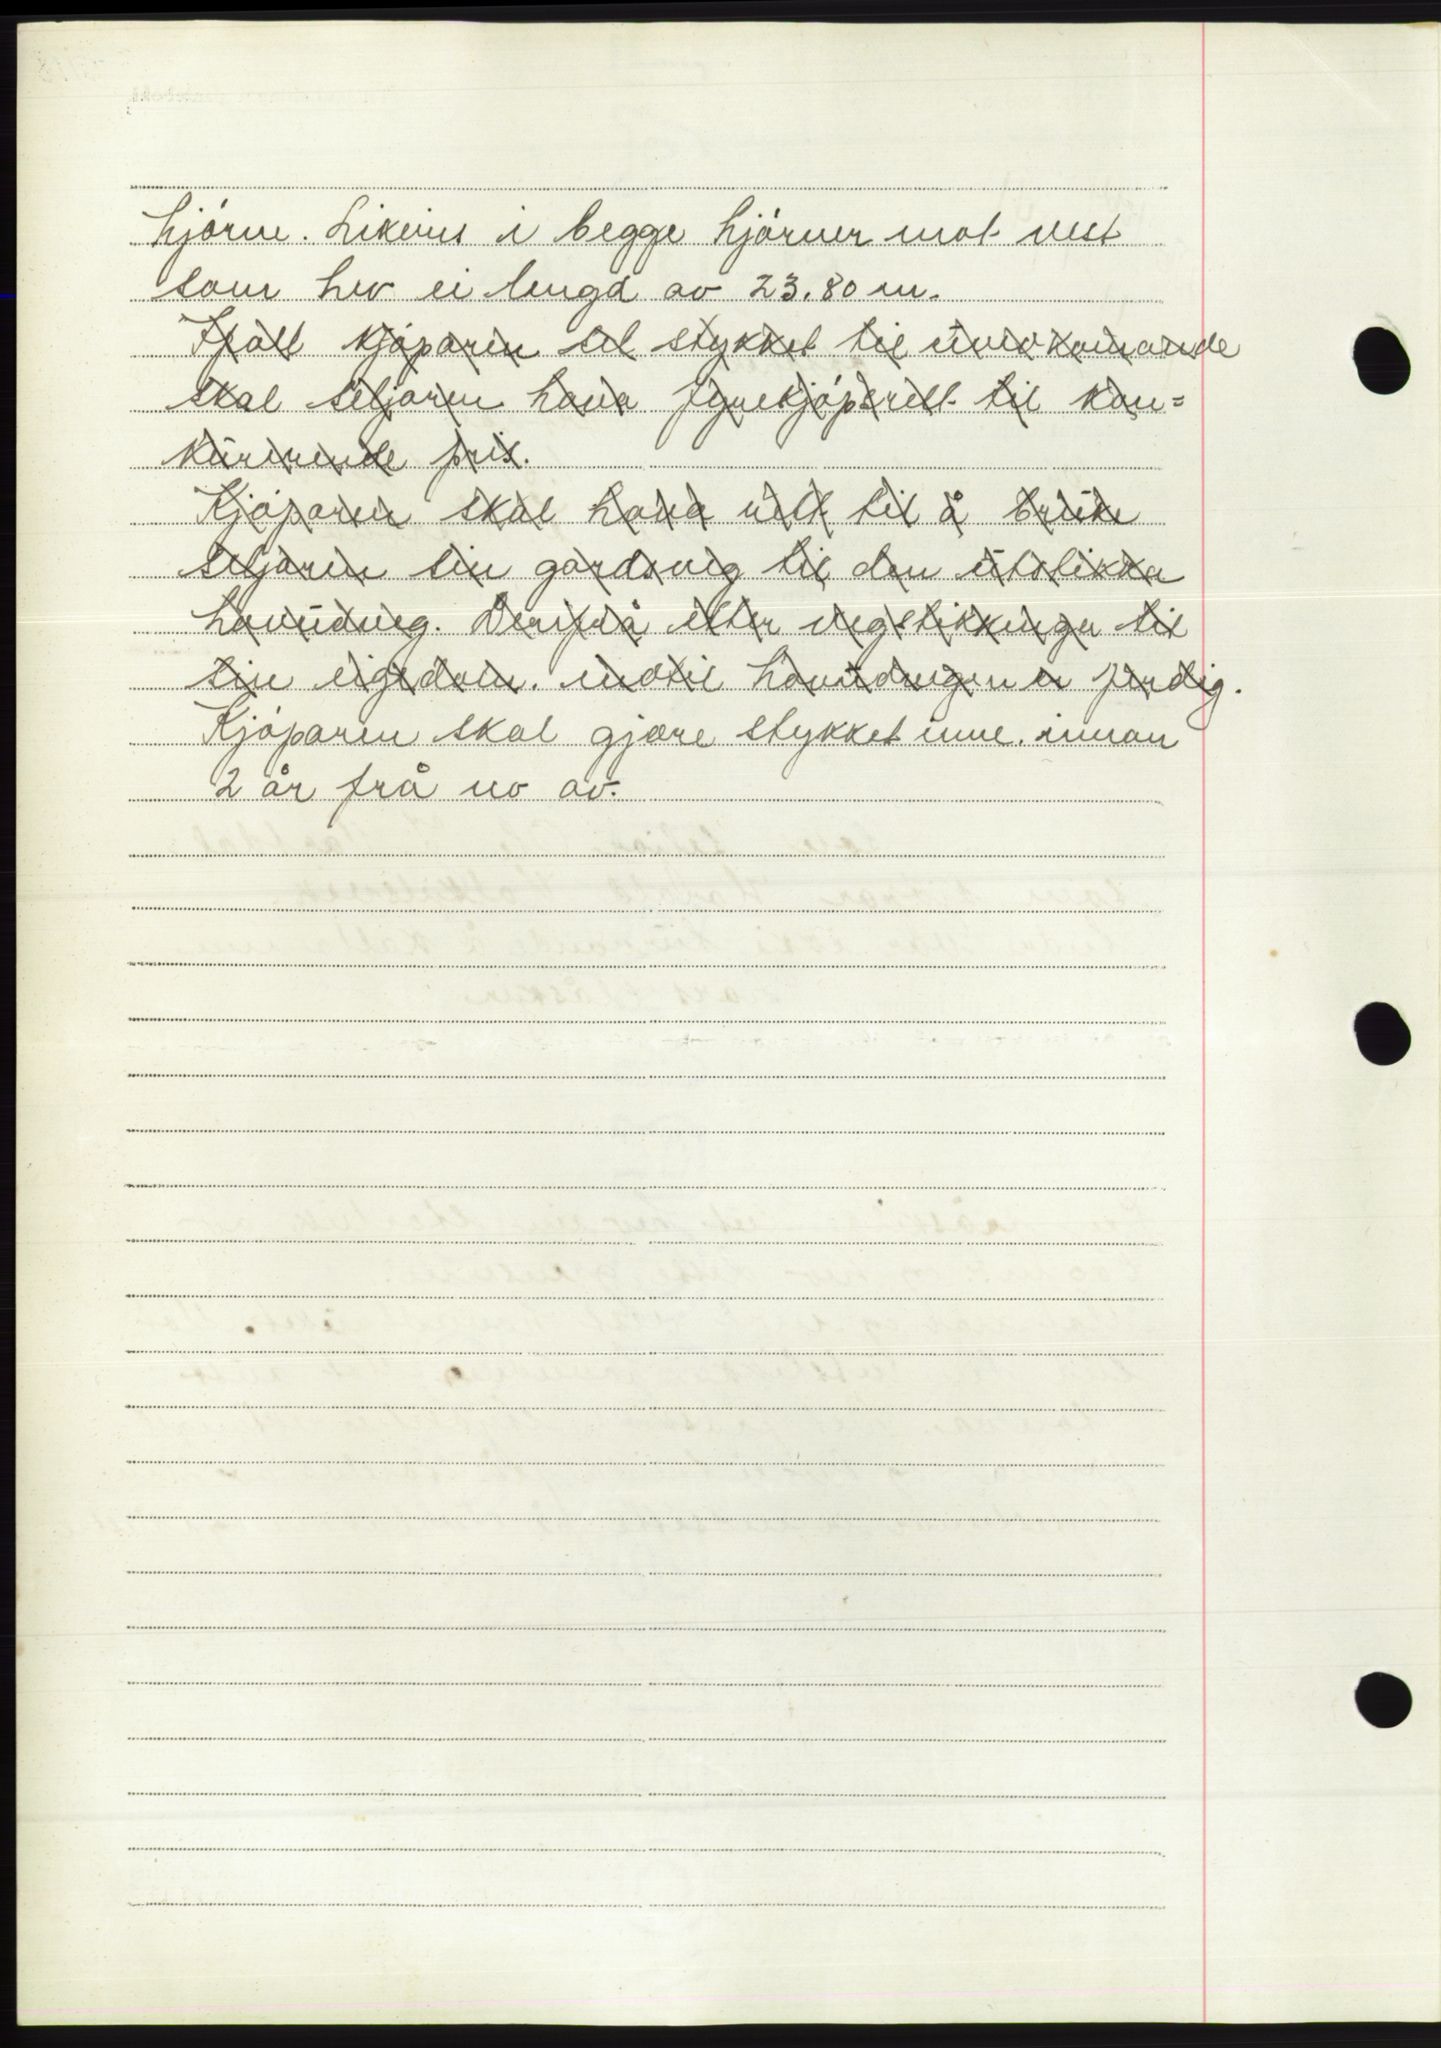 hjörne. Likeins i begge hjörner mot vest
som hev ei lengd av 23.80 m.
Ifall kjöparen sel stykket til uvedkomande
skal seljaren hava fyrekjöpsrett til kon=
kurerende pris.
Kjöparen skal hava rett til å bruke
seljaren sin gardsveg til den utstikka
hovudveg. Derifrå etter vegstikkinga til
sin eigedom. inntil hovudvegen er ferdig.
Kjöparen skal gjære stykket inne. innan
2 år frå no av.